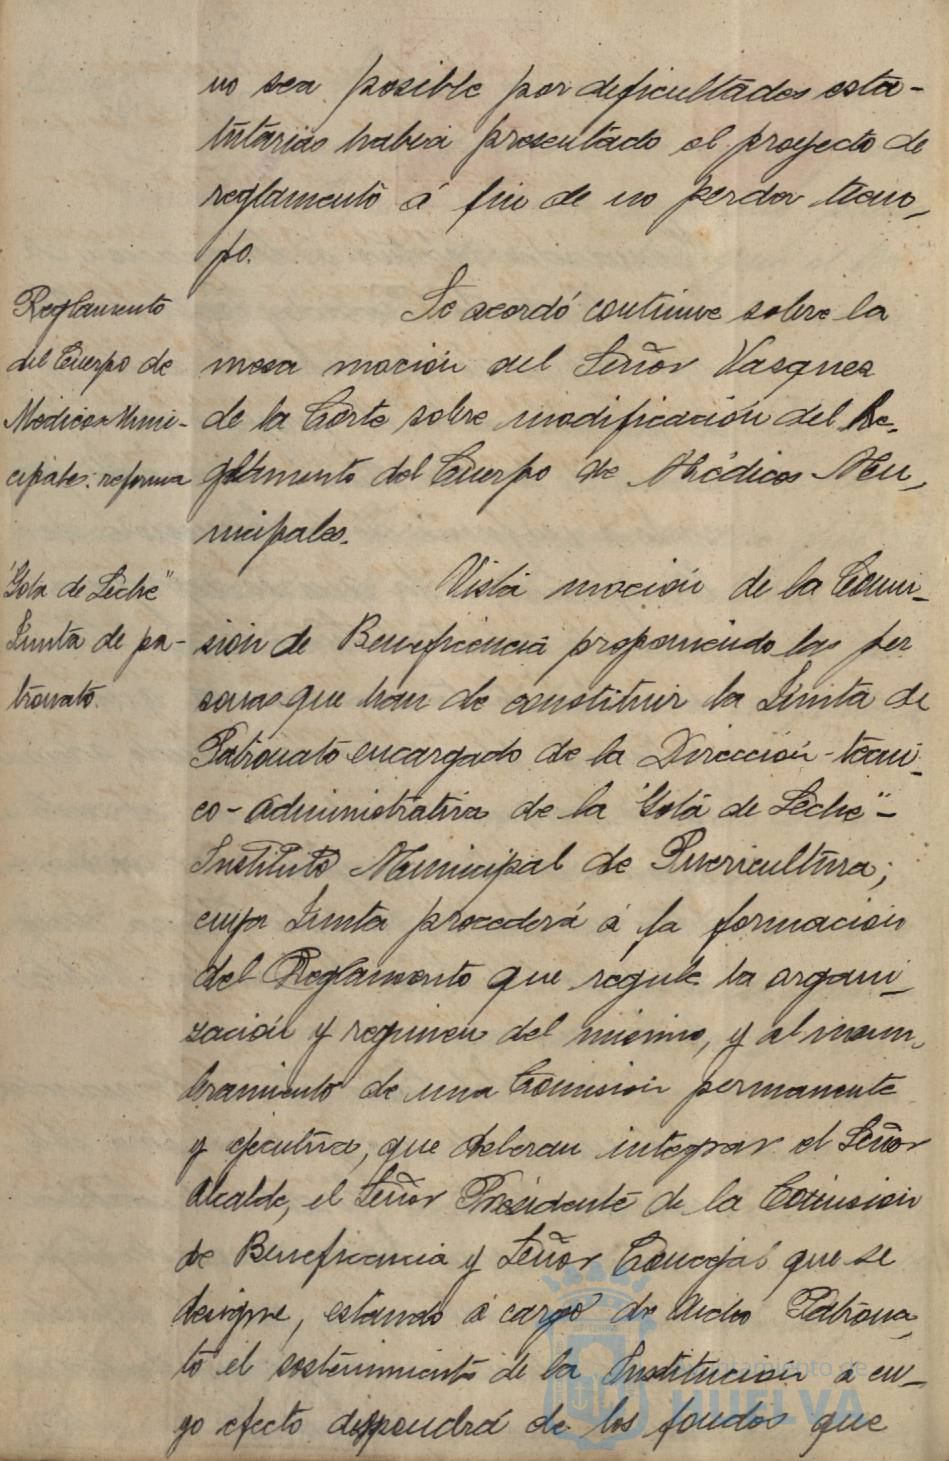 no sea posible por dificultades esta-
tutarias habia presentado el proyecto de
reglamento á fin de no perder tiem-
po.
Reglamento
del Cuerpo de
Médicos Muni-
cipales: reforma
Se acordó continue sobre la
mesa moción del Señor Vasquez
de la Corte sobre modificación del Re-
glamento del Cuerpo de Médicos Mu-
nicipales.
"Gota de Leche"
Junta de pa-
tronato.
Vista moción de la Comi-
sión de Beneficencia proponiendo las per
sonas que han de constituir la Junta de
Patronato encargado de la Dirección-técni-
co-administrativa de la "Gota de Leche"-
Instituto Municipal de Puericultura;
cuya Junta procederá á la formación
del Reglamento que regule la organi-
zación y regimen del mismo, y al nom-
bramiento de una Comisión permanente
y ejecutiva, que deberan integrar el Señor
Alcalde, el Señor Presidente de la Comision
de Beneficencia y Señor Concejal que se
designe, estando á cargo de dicho Patrona-
to el sostenimiento de la Institución á cu-
yo efecto dispondrá de los fondos que
Ayuntamiento de
HUELVA